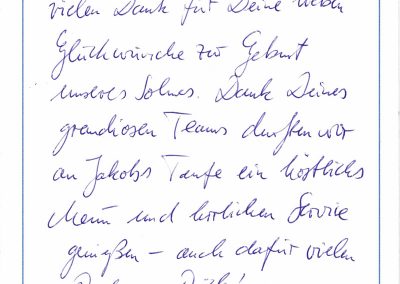 vielen Dank für Deine lieben
Glückwünsche zur Geburt
unseres Sohnes. Dank Deines
grandiosen Teams durften wir
an Jakobs Taufe ein köstliches
Menü und herrlichen Service
genießen – auch dafür vielen